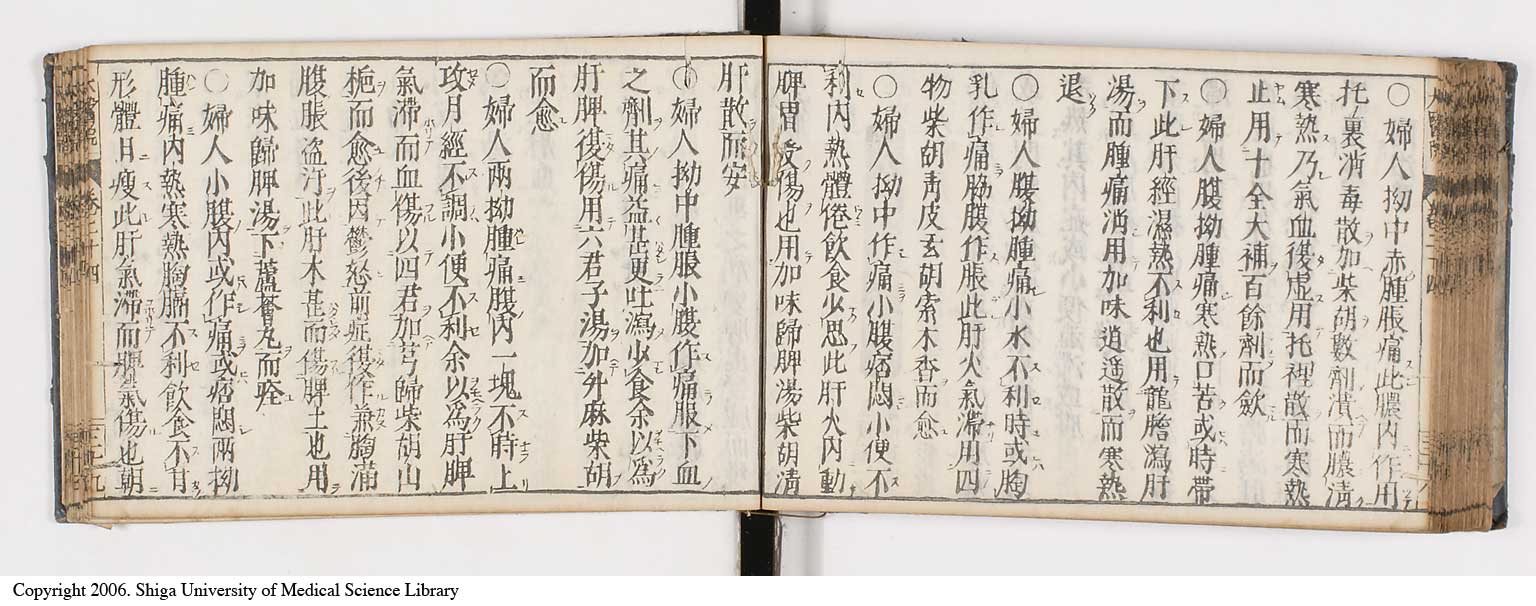 ○婦人拗中赤腫脹痛此膿内作用
托裏消毒散加柴胡數劑潰而膿清
寒熱乃氣血復虚用托裡散而寒熱
止用十全大補百餘劑而歛
○婦人腹拗腫痛寒熱口苦或時帶
下此肝經濕熱不利也用龍膽瀉肝
湯而腫痛消用加味逍遥散而寒熱
退
○婦人腹拗腫痛小水不利時或胸
乳作痛脇腹作脹此肝火氣滯用四
物柴胡青皮玄胡索木香而愈
○婦人拗中作痛小腹痞悶小便不
利内熱體倦飲食少思此肝火内動
脾胃受傷也用加味歸脾湯柴胡清
肝散而安
○婦人拗中腫脹小腹作痛服下血
之劑其痛益甚更吐瀉少食余以為
肝脾復傷用六君子湯加升麻柴胡
而愈
○婦人兩拗腫痛腹内一塊不時上
攻月經不調小便不利余以為肝脾
氣滯而血傷以四君加芎歸柴胡山
梔而愈後因鬱怒前症復作兼胸滿
腹脹盗汗此肝木甚而傷脾土也用
加味歸脾湯下蘆薈丸而痊
○婦人小腹内或作痛或痞悶兩拗
腫痛内熱寒熱胸膈不利飲食不甘
形體日瘦此肝氣滯而脾氣傷也朝
Copyright 2006. Shiga University of Medical Science Library